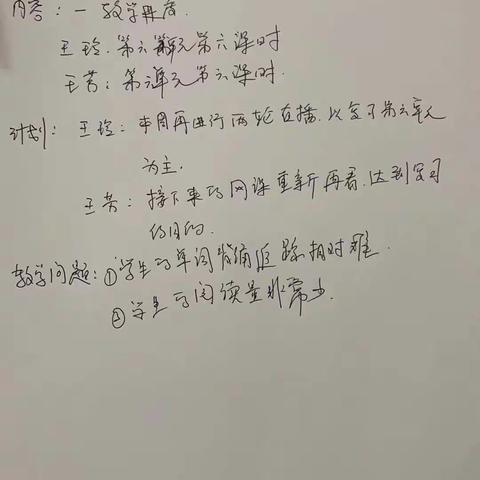 内容：一 教学进度
王玲：第六单元第六课时
王芳：第六单元第六课时.
计划：王玲：本周再进行两轮直播，以复习第六单元
为主.
王芳：接下来的网课重新再看，达到复习
的目的.
教学问题：①学生的单词背诵追踪相对难.
②学生的阅读量非常少.